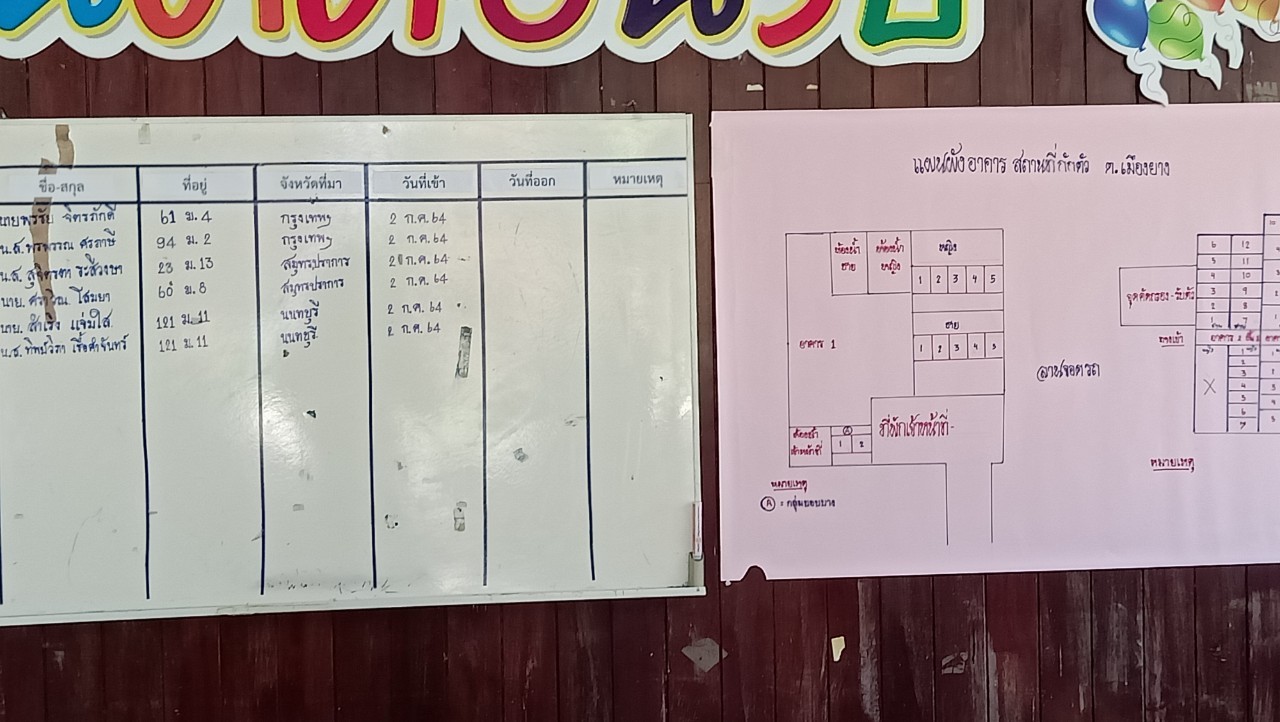 ยินดีต้อนรับ
ชื่อ-สกุล ที่อยู่ จังหวัดที่มา วันที่เข้า วันที่ออก หมายเหตุ
นายพรชัย จิตรภักดี 61 ม.4 กรุงเทพฯ 2 ก.ค.64
น.ส.พรพรรณ 94 ม.2 กรุงเทพฯ 2 ก.ค.64
น.ส. 23 ม.13 สมุทรปราการ 2 ก.ค.64
นาย. โสมยา 60 ม.8 สมุทรปราการ 2 ก.ค.64
นาย. สำเริง แจ่มใส 121 ม.11 นนทบุรี 2 ก.ค.64
น.ส. เชื้อคำจันทร์ 121 ม.11 นนทบุรี 2 ก.ค.64
แผนผังอาคาร สถานที่กักตัว ต.เมืองยาง
ห้องน้ำ ชาย
ห้องน้ำ หญิง
หญิง
1 2 3 4 5
ชาย
1 2 3 4 5
อาคาร 1
ที่พักเจ้าหน้าที่-
ห้องน้ำ เจ้าหน้าที่
A
1 2
หมายเหตุ
A = กลุ่มเปราะบาง
ลานจอดรถ
จุดคัดกรอง-รับตัว
ทางเข้า
6 12
5 11
4 10
3 9
2 8
1 7
อาคาร 2
X
1
2
3
4
5
6
7
หมายเหตุ